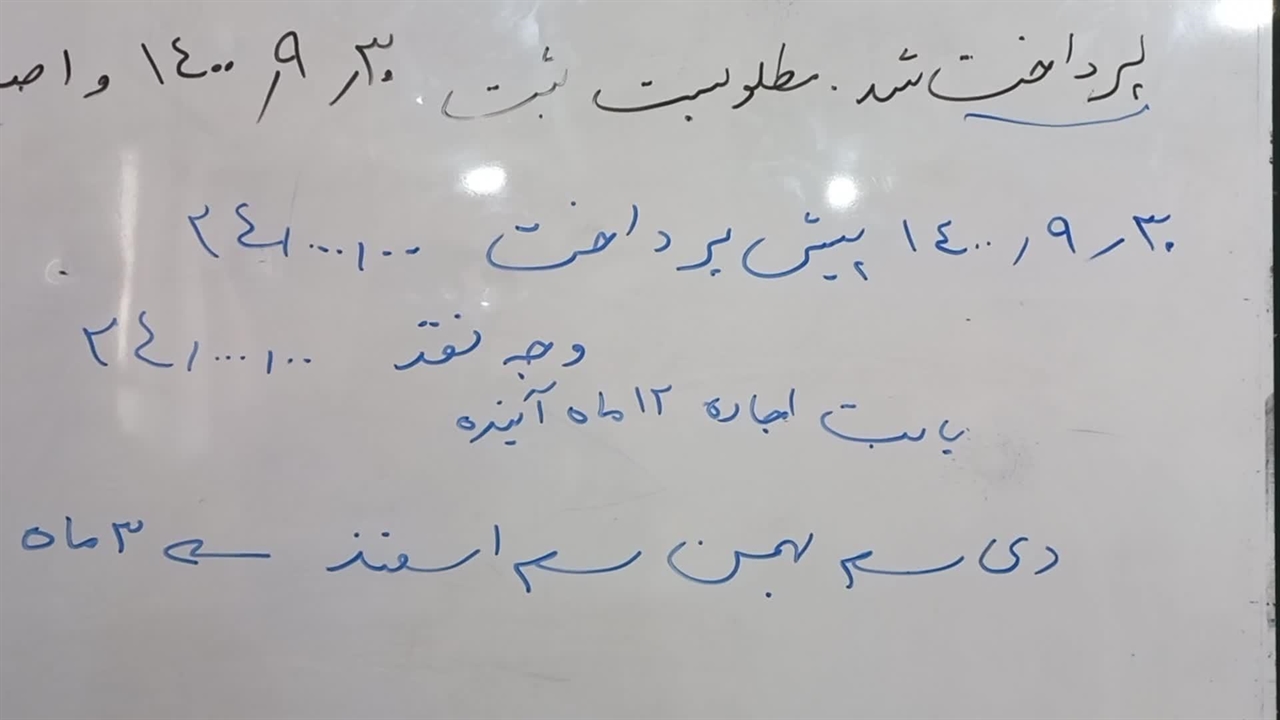 پرداخت شد. مطلوبست ثبت ۱۴۰۰/۹/۳۰ و اصـ
۱۴۰۰/۹/۳۰ پیش پرداخت ۲۴,۰۰۰,۰۰۰
وجه نقد ۲۴,۰۰۰,۰۰۰
بابت اجاره ۱۲ ماه آینده
دی ← بهمن ← اسفند ← ۳ ماه